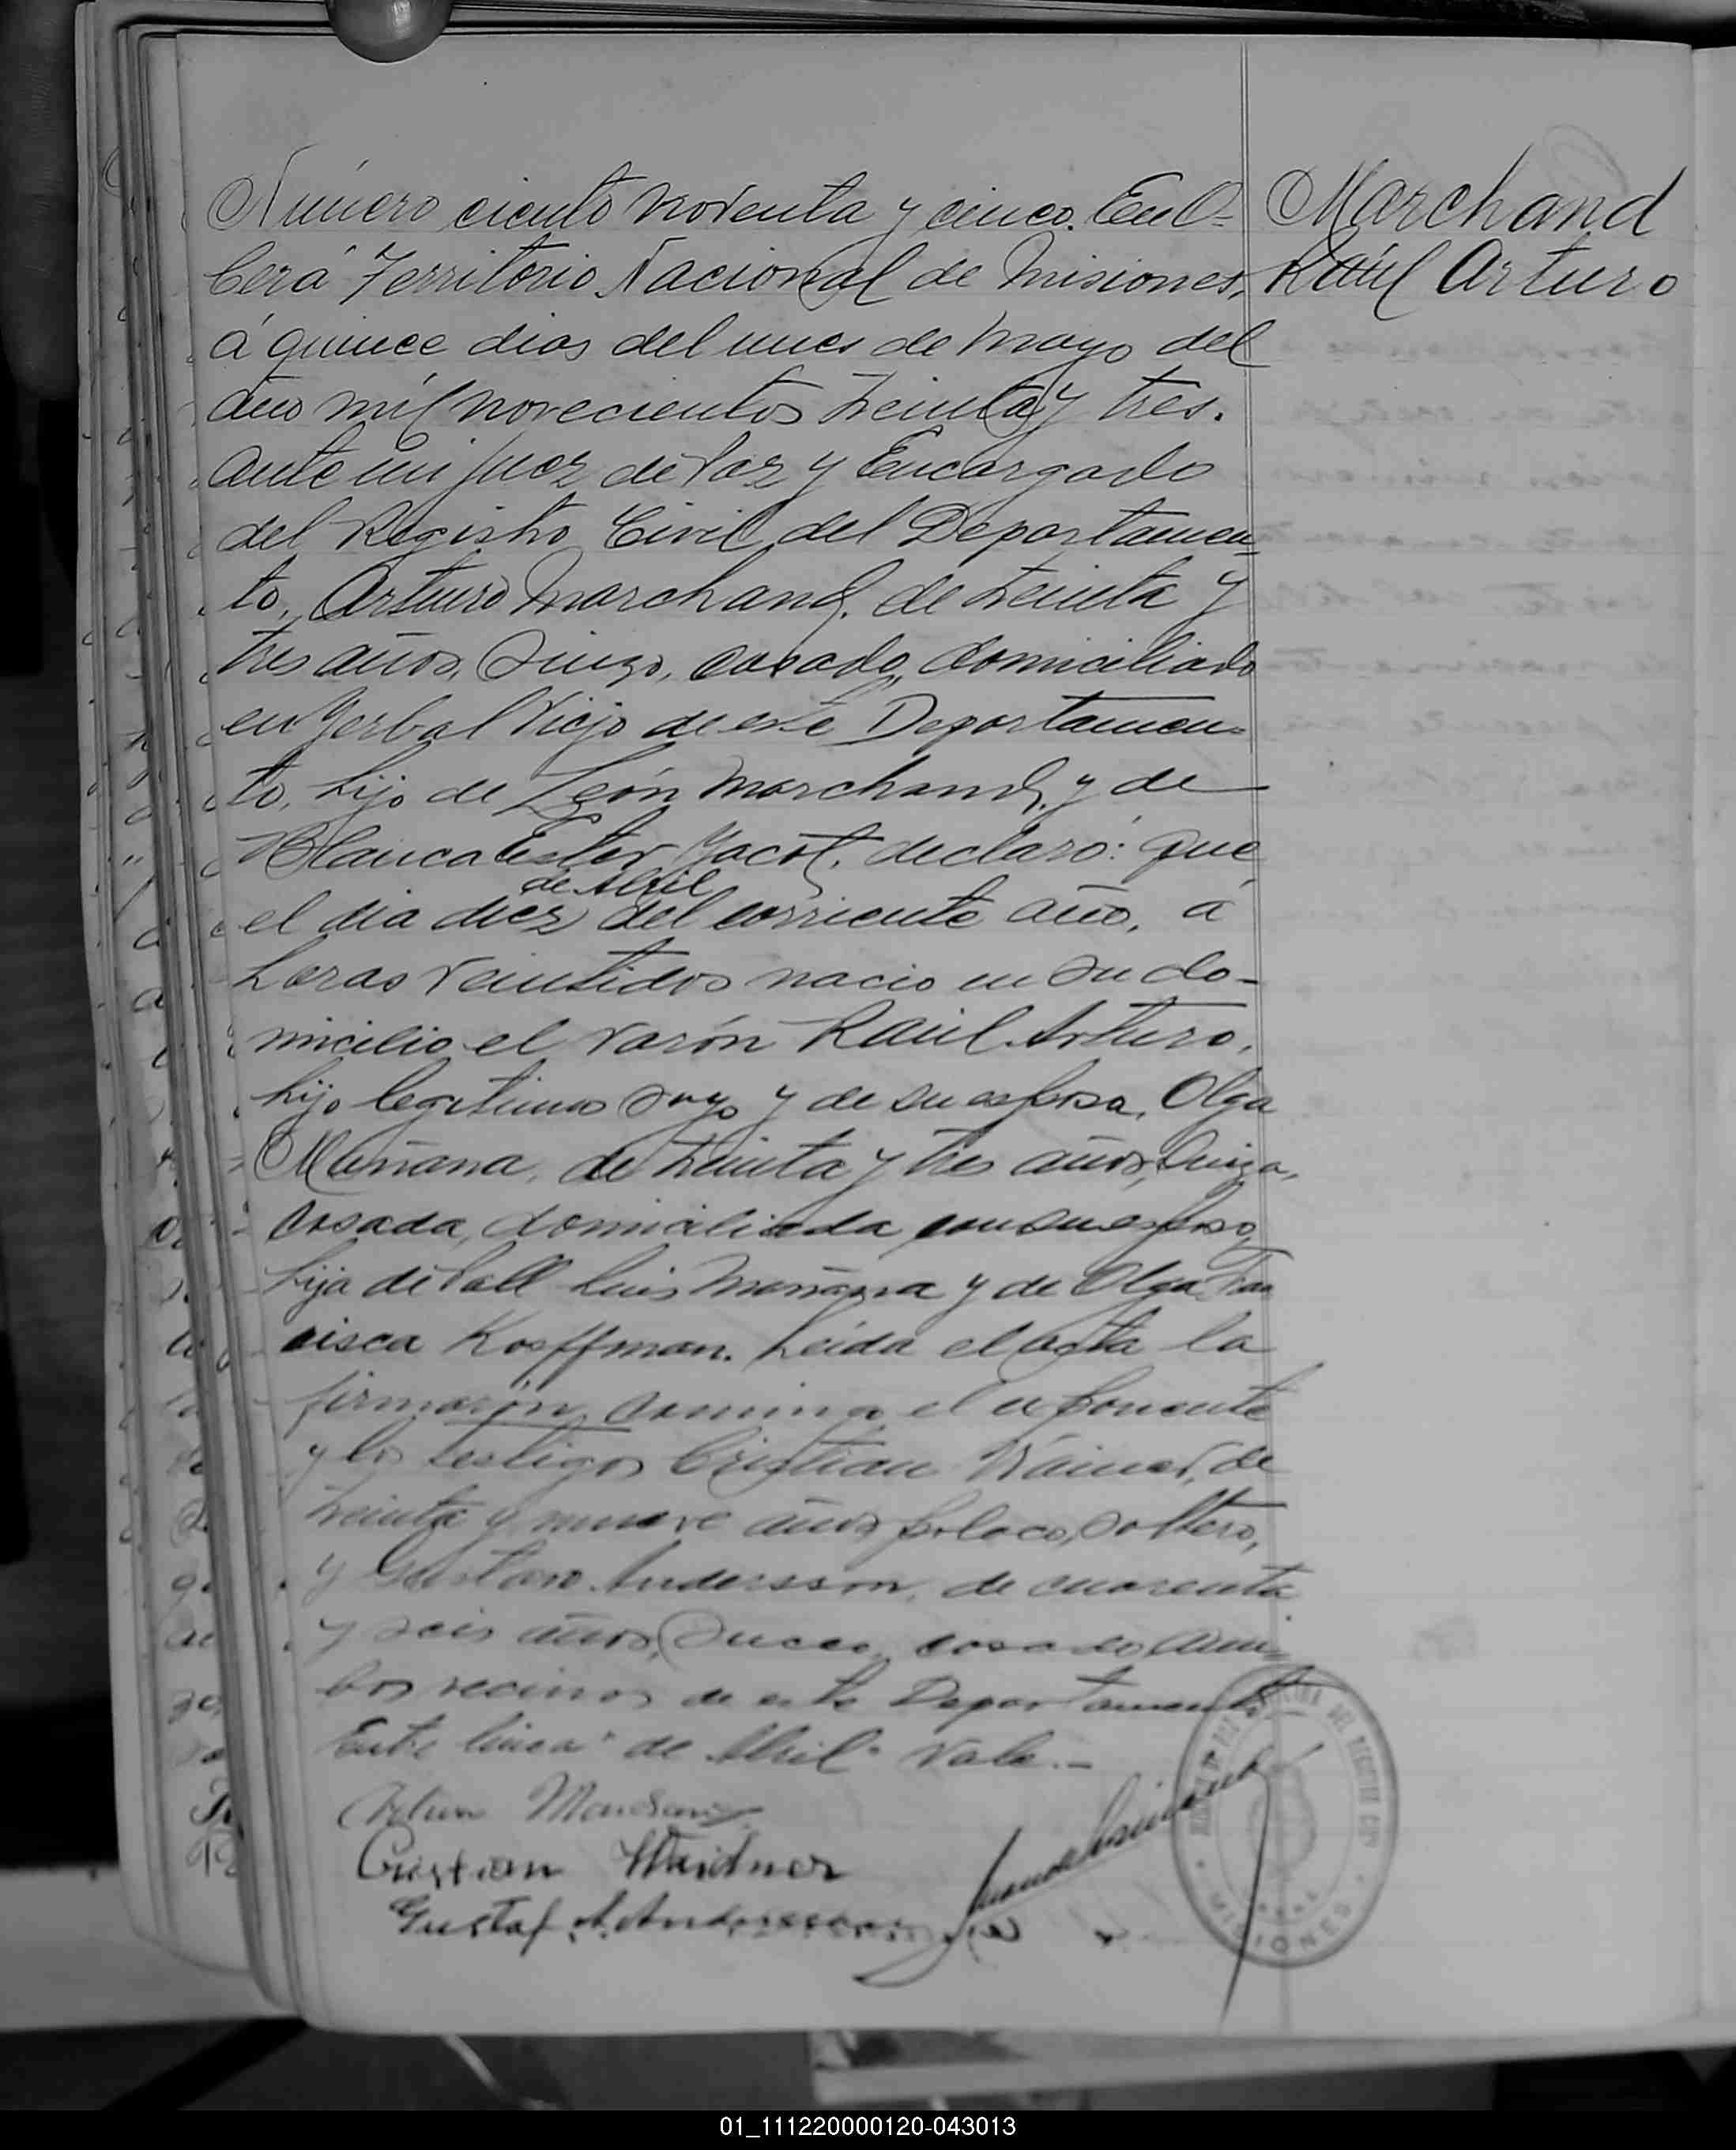 Número ciento noventa y cinco. En O-
berá Territorio Nacional de Misiones,
á quince dias del mes de Mayo del
año mil novecientos treinta y tres.
ante mi Juez de Paz y Encargado
del Registro Civil del Departamen-
to, Arturo Marchand, de treinta y
tres años, Suizo, casado, domiciliado
en Yerbal Viejo de este Departamen-
to, hijo de León Marchand, y de
Blanca Ester Jacot, declaró: que
de Abril
el dia diez del corriente año, á
horas veintidos nacio en su do-
micilio el varón Raúl Arturo,
hijo legitimo suyo y de su esposa, Olga
Mañana, de treinta y tres años, Suiza,
casada, domiciliada con su esposo,
hija de Luis Mañana y de Olga Fran
cisca Koffman. Leida el acta la
firmarón conmigo el exponente
y los testigos Cristian de
treinta y nueve años polaco, soltero,
y Gustavo Andersson, de cuarenta
y seis años, Sueco, casado, am-
bos vecinos de este Departamento
Entre linea "de Abril" vale.-
Arturo Marchand
Cristian Waidner
Gustaf A. Andersson
Marchand
Raúl Arturo
DEL REGISTRO CIVIL
MISIONES
01_111220000120-043013